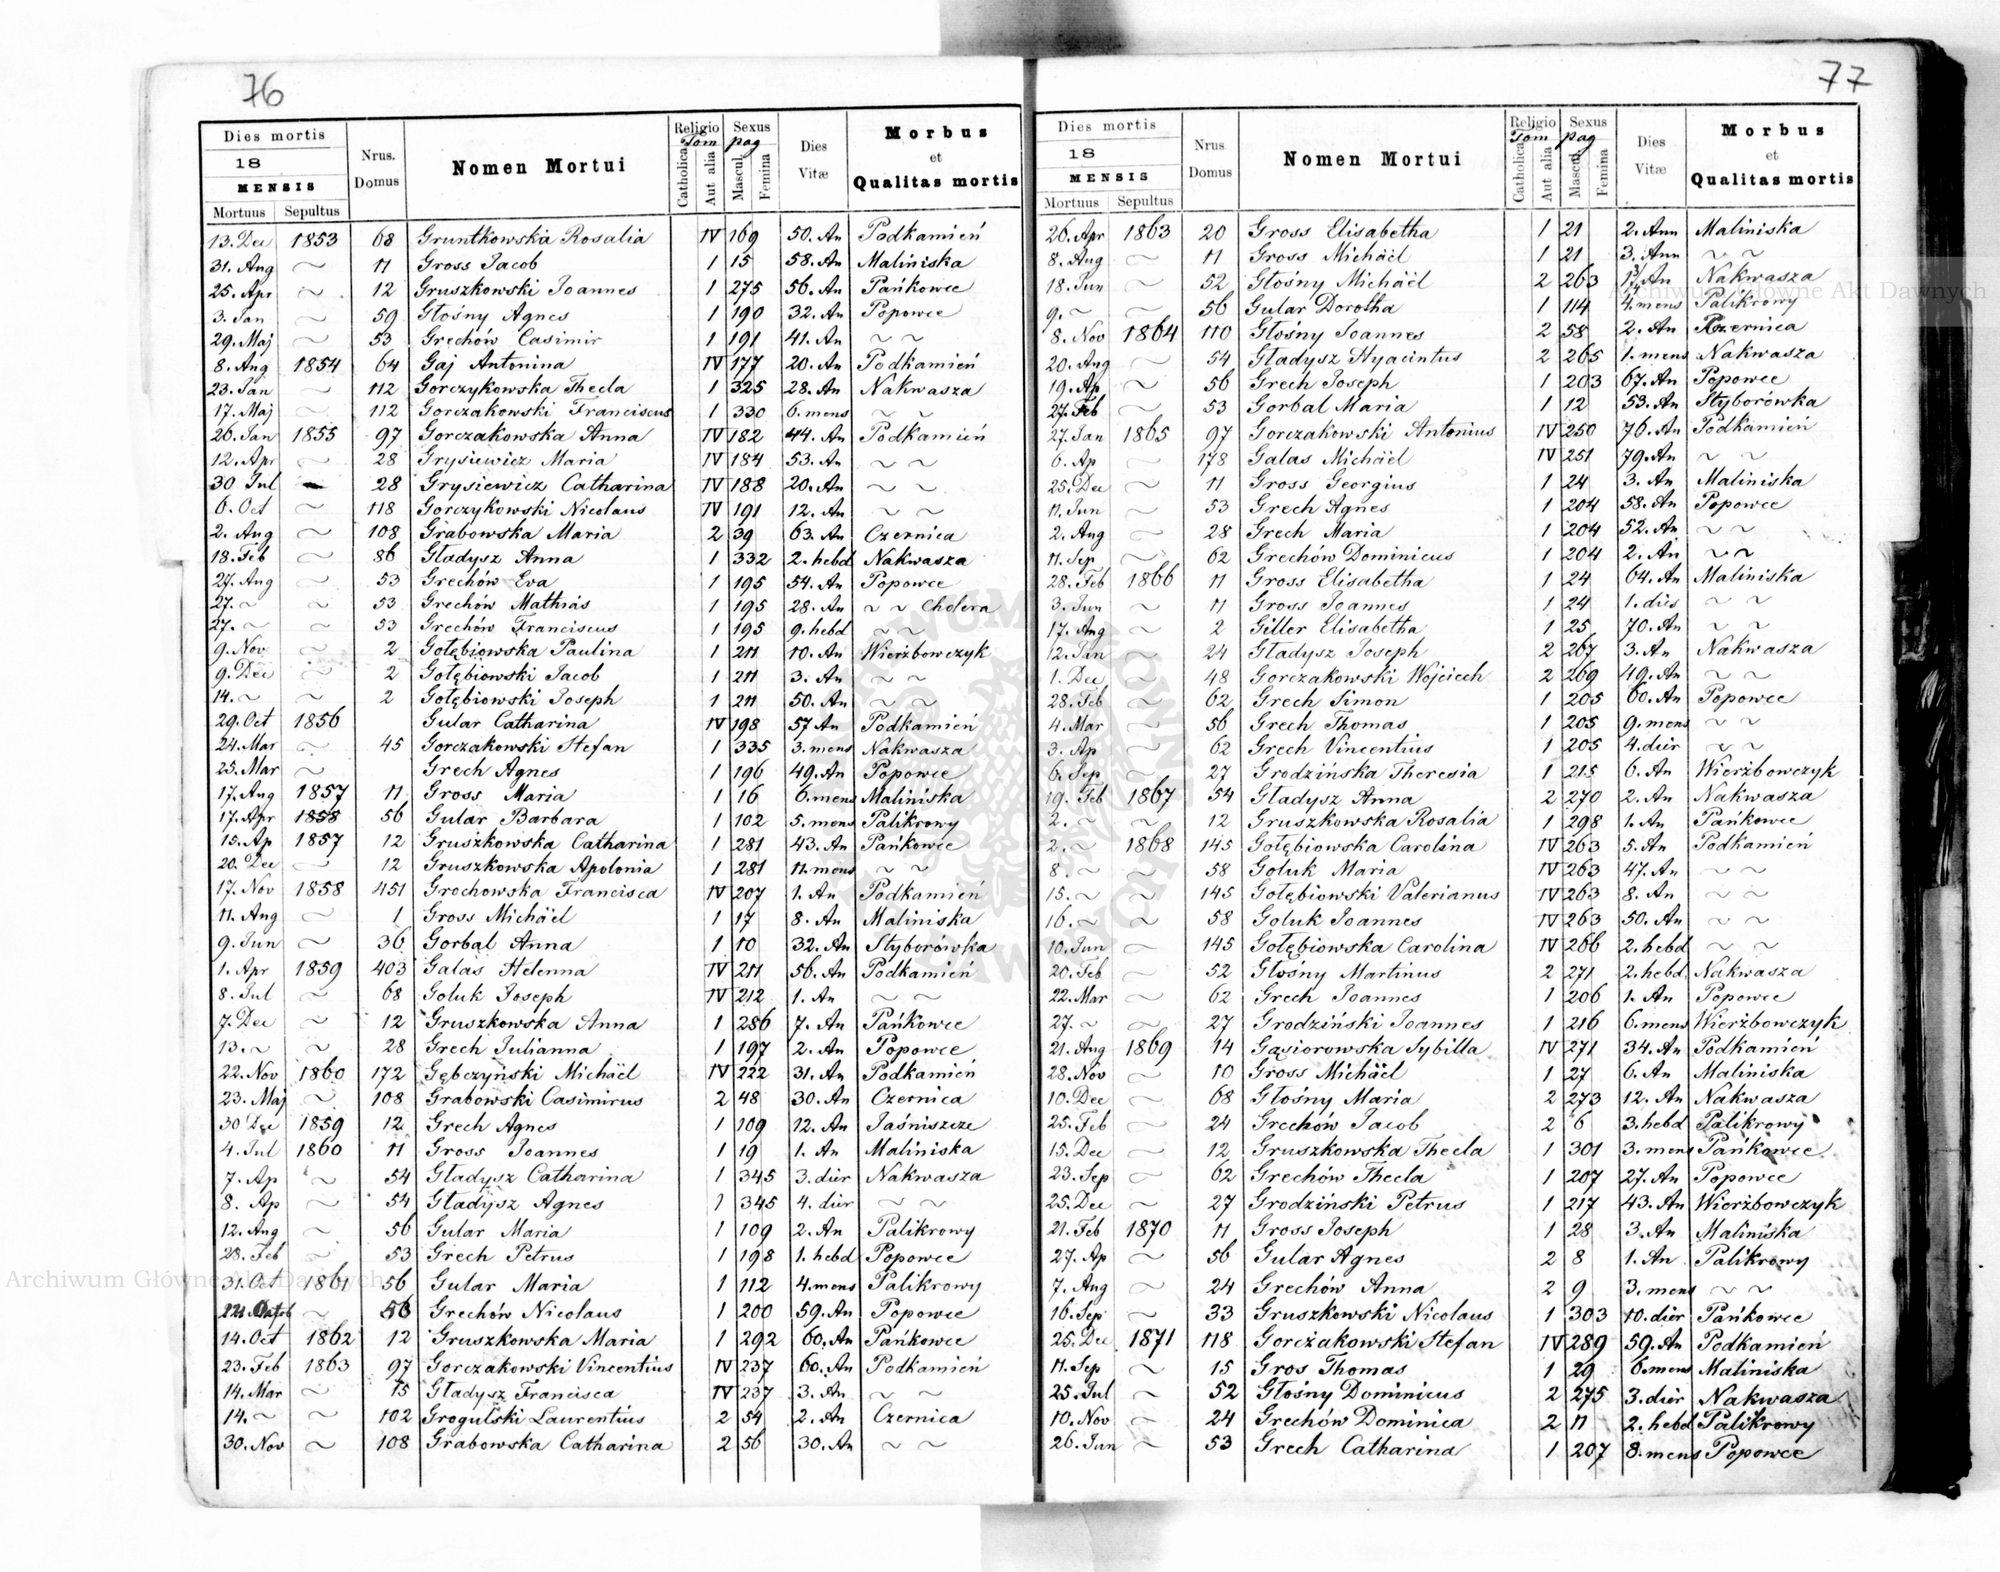 76
Dies mortis Nrus. Domus Nomen Mortui Religio Sexus Dies Vitæ Morbus et Qualitas mortis
18 Tom pag
MENSIS Catholica Aut alia Mascul. Femina
Mortuus Sepultus
13. Dec 1853 68 Gruntkowska Rosalia IV 169 50. An Podkamień
31. Aug ~ 11 Gross Jacob 1 15 58. An Maliniska
25. Apr ~ 12 Gruszkowski Joannes 1 275 56. An Pańkowce
3. Jan ~ 59 Głośny Agnes 1 190 32. An Popowce
29. Maj ~ 53 Grechów Casimir 1 191 41. An ~ ~
8. Aug 1854 64 Gaj Antonina IV 177 20. An Podkamień
23. Jan ~ 112 Gorczykowska Thecla 1 325 28. An Nakwasza
17. Maj ~ 112 Gorczakowski Franciscus 1 330 6. mens ~ ~
26. Jan 1855 97 Gorczakowska Anna IV 182 44. An Podkamień
12. Apr ~ 28 Grysiewicz Maria IV 184 53. An ~ ~
30 Jul ~ 28 Grysiewicz Catharina IV 188 20. An ~ ~
6. Oct ~ 118 Gorczykowski Nicolaus IV 191 12. An ~ ~
2. Aug ~ 108 Grabowska Maria 2 39 63. An Czernica
18. Feb ~ 86 Gładysz Anna 1 332 2. hebd Nakwasza
27. Aug ~ 53 Grechów Eva 1 195 54. An Popowce
27. ~ ~ 53 Grechów Mathias 1 195 28. An ~ ~ Cholera
27. ~ ~ 53 Grechów Franciscus 1 195 9. hebd ~ ~
9. Nov ~ 2 Gołębiowska Paulina 1 211 10. An Wierzbowczyk
9. Dec ~ 2 Gołębiowski Jacob 1 211 3. An ~ ~
14. ~ ~ 2 Gołębiowski Joseph 1 211 50. An ~ ~
29. Oct 1856 Gular Catharina IV 198 57 An Podkamień
24. Mar ~ 45 Gorczakowski Stefan 1 335 3. mens Nakwasza
25. Mar ~ Grech Agnes 1 196 49. An Popowce
17. Aug 1857 11 Gross Maria 1 16 6. mens Maliniska
17. Apr 1858 56 Gular Barbara 1 102 5. mens Palikrowy
15. Ap 1857 12 Gruszkowska Catharina 1 281 43. An Pańkowce
20. Dec ~ 12 Gruszkowska Apolonia 1 281 11. mens ~ ~
17. Nov 1858 451 Grochowska Francisca IV 207 1. An Podkamień
11. Aug ~ 1 Gross Michäel 1 17 8. An Maliniska
9. Jun ~ 36 Gorbal Anna 1 10 32. An Styborówka
1. Apr 1859 403 Galas Helenna IV 211 56. An Podkamień
8. Jul ~ 68 Goluk Joseph IV 212 1. An ~ ~
7. Dec ~ 12 Gruszkowska Anna 1 286 7. An Pańkowce
13. ~ ~ 28 Grech Julianna 1 197 2. An Popowce
22. Nov 1860 172 Gębczyński Michäel IV 222 31. An Podkamień
23. Maj ~ 108 Grabowski Casimirus 2 48 30. An Czernica
30 Dec 1859 12 Grech Agnes 1 109 12. An Jaśniszcze
4. Jul 1860 11 Gross Joannes 1 19 1. An Maliniska
7. Ap ~ 54 Gładysz Catharina 1 345 3. dier Nakwasza
8. Ap ~ 54 Gładysz Agnes 1 345 4. dier ~ ~
12. Aug ~ 56 Gular Maria 1 109 2. An Palikrowy
28. Feb ~ 53 Grech Petrus 1 198 1. hebd Popowce
31. Oct 1861 56 Gular Maria 1 112 4. mens Palikrowy
~ 56 Grechów Nicolaus 1 200 59. An Popowce
14. Oct 1862 12 Gruszkowska Maria 1 292 60. An Pańkowce
23. Feb 1863 97 Gorczakowski Vincentius IV 237 60. An Podkamień
14. Mar ~ 15 Gładysz Francisca IV 237 3. An ~ ~
14. ~ ~ 102 Grogulski Laurentius 2 54 2. An Czernica
30. Nov ~ 108 Grabowska Catharina 2 56 30. An ~ ~
77
Dies mortis Nrus Domus Nomen Mortui Religio Sexus Dies Vitæ Morbus et Qualitas mortis
18 Tom pag
MENSIS Catholica Aut alia Mascul. Femina
Mortuus Sepultus
26. Apr 1863 20 Gross Elisabetha 1 21 2. Ann Maliniska
8. Aug ~ 11 Gross Michäel 1 21 3. Ann ~ ~
18. Jun ~ 52 Głośny Michäel 2 263 1 3/4 An Nakwasza
9. ~ ~ 56 Gular Dorotha 1 114 4. mens Palikrowy
8. Nov 1864 110 Głośny Joannes 2 58 2. An Czernica
20. Aug ~ 54 Gładysz Hyacintus 2 265 1. mens Nakwasza
19. Ap ~ 56 Grech Joseph 1 203 67. An Popowce
27. Feb ~ 53 Gorbal Maria 1 12 53. An Styborówka
27. Jan 1865 97 Gorczakowski Antonius IV 250 76. An Podkamień
6. Ap ~ 178 Galas Michäel IV 251 79. An ~ ~
25. Dec ~ 11 Gross Georgius 1 24 3. An Maliniska
11. Jun ~ 53 Grech Agnes 1 204 58. An Popowce
2. Aug ~ 28 Grech Maria 1 204 52. An ~ ~
11. Sep ~ 62 Grechów Dominicus 1 204 2. An ~ ~
28. Feb 1866 11 Gross Elisabetha 1 24 64. An Maliniska
3. Jun ~ 11 Gross Joannes 1 24 1. dies ~ ~
17. Aug ~ 2 Giller Elisabetha 1 25 70. An ~ ~
12. Jan ~ 24 Gładysz Joseph 2 267 3. An Nakwasza
1. Dec ~ 48 Gorczakowski Wojciech 2 269 49. An ~ ~
28. Feb ~ 62 Grech Simon 1 205 60. An Popowce
4. Mar ~ 56 Grech Thomas 1 205 9. mens ~ ~
3. Ap ~ 62 Grech Vincentius 1 205 4. dier ~ ~
6. Sep ~ 27 Grodzińska Theresia 1 215 6. An Wierzbowczyk
19. Feb 1867 54 Gładysz Anna 2 270 2. An Nakwasza
2. ~ ~ 12 Gruszkowska Rosalia 1 298 1. An Pańkowce
2. ~ 1868 145 Gołębiowska Carolina IV 263 5. An Podkamień
8. ~ ~ 58 Goluk Maria IV 263 47. An ~ ~
15. ~ ~ 145 Gołębiowski Valerianus IV 263 8. An ~ ~
16. ~ ~ 58 Goluk Joannes IV 263 50. An ~ ~
10. Jun ~ 145 Gołębiowska Carolina IV 266 2. hebd ~ ~
20. Feb ~ 52 Głośny Martinus 2 271 2. hebd. Nakwasza
22. Mar ~ 62 Grech Joannes 1 206 1. An Popowce
27. ~ ~ 27 Grodziński Joannes 1 216 6. mens Wierzbowczyk
21. Aug 1869 14 Gąsiorowska Sybilla IV 271 34. An Podkamień
28. Nov ~ 10 Gross Michäel 1 27 6. An Maliniska
10. Dec ~ 68 Głośny Maria 2 273 12. An Nakwasza
25. Feb ~ 24 Grechów Jacob 2 6 3. hebd Palikrowy
15. Dec ~ 12 Gruszkowska Thecla 1 301 3. mens Pańkowce
23. Sep ~ 62 Grechów Thecla 1 207 27. An Popowce
25. Dec ~ 27 Grodziński Petrus 1 217 43. An Wierzbowczyk
21. Feb 1870 11 Gross Joseph 1 28 3. An Maliniska
27. Ap ~ 56 Gular Agnes 2 8 1. An Palikrowy
7. Aug ~ 24 Grechów Anna 2 9 3. mens ~ ~
16. Sep ~ 33 Gruszkowski Nicolaus 1 303 10. dier Pańkowce
25. Dec 1871 118 Gorczakowski Stefan IV 289 59. An Podkamień
11. Sep ~ 15 Gros Thomas 1 29 6. mens Maliniska
25. Jul ~ 52 Głośny Dominicus 2 275 3. dier Nakwasza
10. Nov ~ 24 Grechów Dominica 2 11 2. hebd Palikrowy
26. Jun ~ 53 Grech Catharina 1 207 8. mens Popowce
Archiwum Główne Akt Dawnych
Archiwum Główne Akt Dawnych